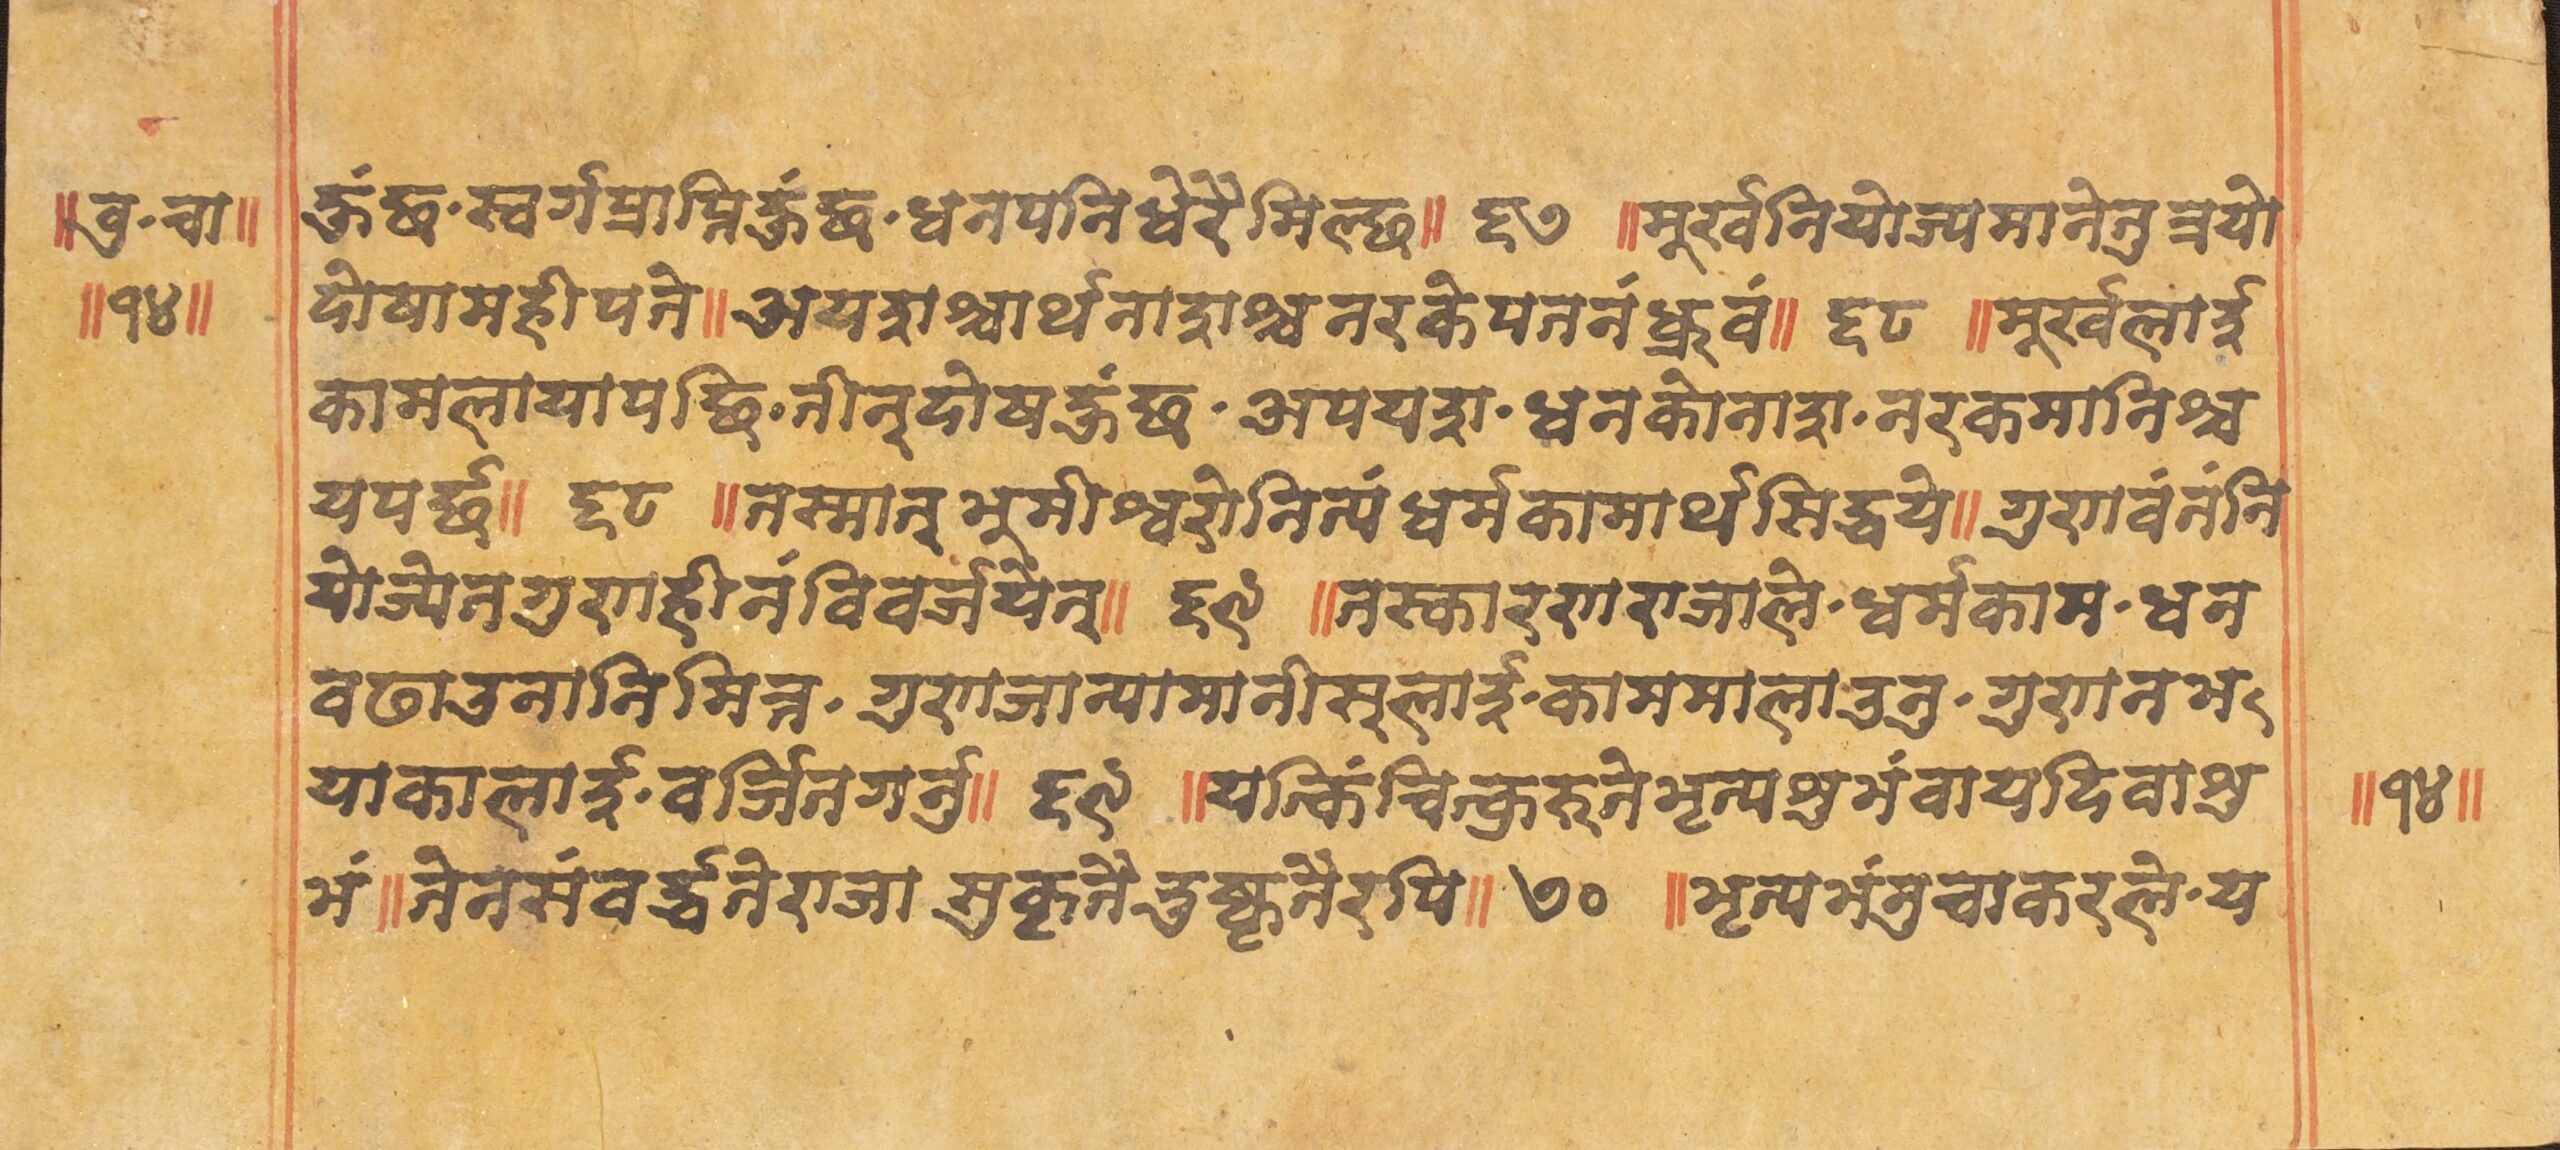 ॥वु·चा॥
॥१४॥
हुंछ·स्वर्गप्राप्तिहुंछ·धनपनिधेरैमिल्छ॥ ६७ ॥मूर्खनियोज्यमानेतुत्रयो
दोषामहीपते॥अयशश्चार्थनाशश्चनरकेपतनंध्रुवं॥ ६८ ॥मूर्खलाई
कामलायापछि·तीन्दोषहुंछ·अपयश·धनकोनाश·नरकमानिश्च
यपर्छ॥ ६८ ॥तस्मात्भूमीश्वरोनित्यंधर्मकामार्थसिद्धये॥गुणवंतंनि
योज्येतगुणहीनंविवर्जयेत्॥ ६९ ॥तस्कारणराजाले·धर्मकाम·धन
वढाउनानिमित्त·गुणजान्यामानीस्लाई·काममालाउनु·गुणनभ
याकालाई·वर्जितगर्नु॥ ६९ ॥यत्किंचित्कुरुतेभृत्यशुभंवायदिवाशु
भं॥तेनसंवर्द्धतेराजा सुकृतैदुष्कृतैरपि॥ ७० ॥भृत्यभंनुचाकरले·य
॥१४॥